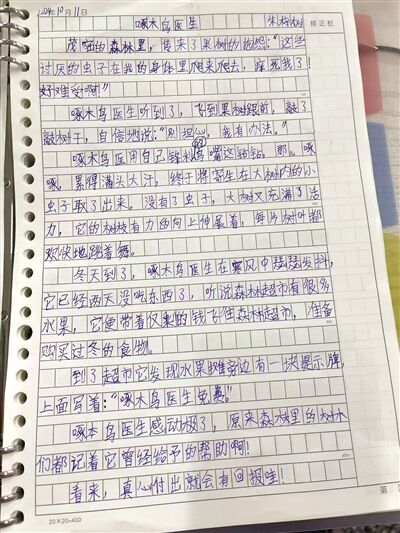 2024年10月11日
啄木鸟医生 朱梓树 修正栏
茂密的森林里，传来了果树的抱怨：“这些
讨厌的虫子在我的身体里爬来爬去，痒死我了！
好难受啊”
啄木鸟医生听到了，飞到果树跟前，敲了
敲树干，自信地说：“别担心，我有办法。”
啄木鸟医用自己锋利的嘴这钻钻，那
啄，累得满头大汗，终于将寄生在大树内的小
虫子取了出来。没有了虫子，大树又充满了活
力，它的树枝有力的向上伸展着，每片树叶都
欢快地跳着舞。
冬天到了，啄木鸟医生在寒风中瑟瑟发抖，
它已经两天没吃东西了，听说森林超市有很多
水果，它便带着仅剩的钱飞往森林超市，准备
购买过冬的食物。
到了超市它发现水果摊旁边有一块提示牌，
上面写着：“啄木鸟医生免费。”
啄木鸟医生感动极了，原来森林里的树木
们都记着它曾经给予的帮助啊！
看来，真心付出就会有回报哇！
20×20=400 第